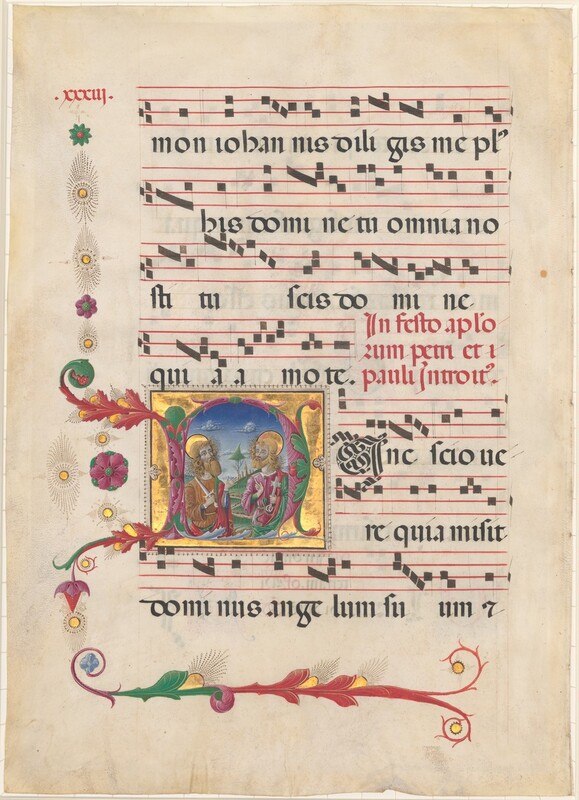 .xxxiij.
mon iohan nis dili gis me pl'
his domi ne tu omnia no
sti tu scis do mi ne
In festo aplo
rum petri et
qui a a mo te. pauli Introit'.
Nunc scio ue
re quia misit
domi nus ange lum su um ⁊